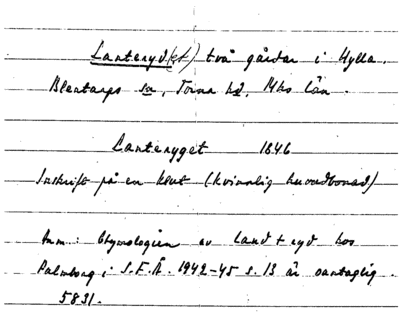 Lanteryd(et) två gårdar i Hylla.
Blentarps sn, Torna hd, Mhs län.
Lanteryget 1846
Inskrift på en klut (kvinnlig huvudbonad)
Anm.: Etymologien av land + ryd hos
Palmborg i S.F.Å. 1942-45 s. 13 är oantaglig.
5831.